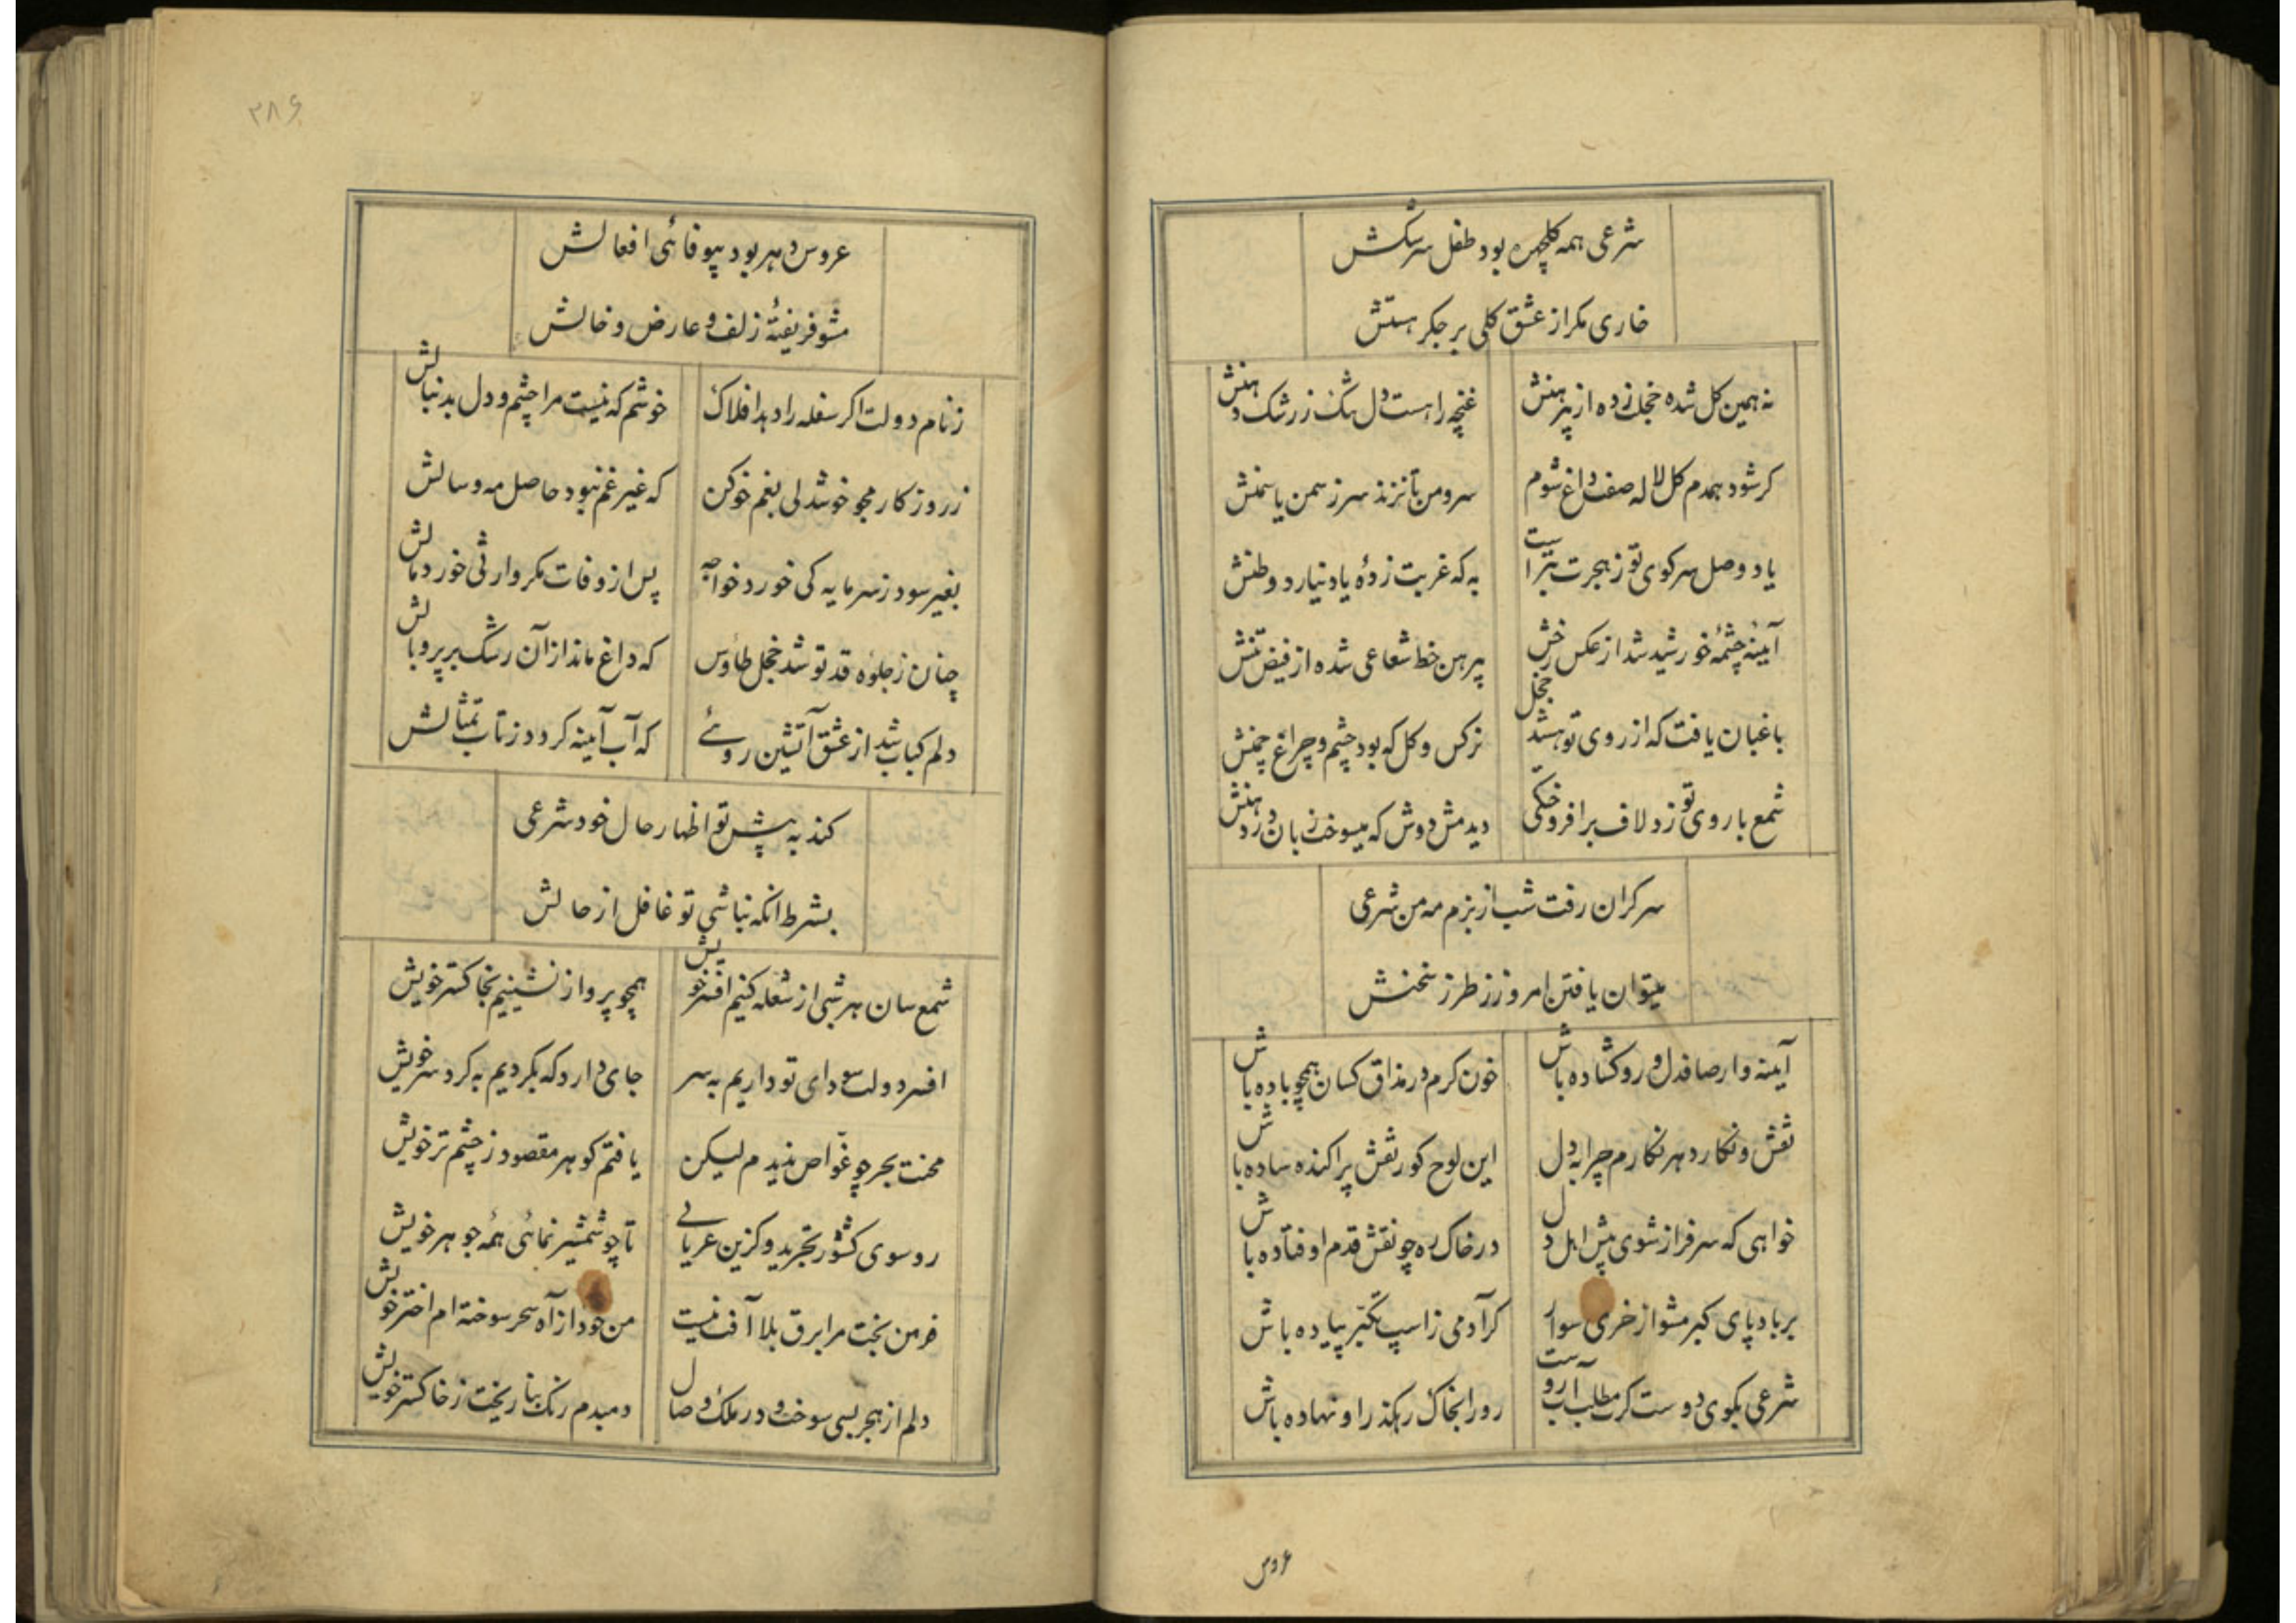 شرعی همه کلچهره بود طفل سرشکش
خاری مکر از عشق کلی بر جکر هستش
نه همین کل شده خجلت زده از پیرهنش
غنچه را هست دل تنک ز رشک دهنش
کر شود همدم کل لاله صفت داغ شوم
سرو من تا نزند سر ز سمن یاسمنش
یاد وصل سر کوی تو ز هجرت بتر است
به که غربت زدهٔ یاد نیارد وطنش
آینه چشمهٔ خورشید شد از عکس رخش
پیرهن خط شعاعی شده از فیض تنش
باغبان یافت که از روی تو هستند خجل
نرکس و کل که بود چشم و چراغ چمنش
شمع با روی تو زد لاف برافروختکی
دیدمش دوش که میسوخت زبان در دهنش
سر کران رفت شب از بزم مه من شرعی
میتوان یافتن امروز ز طرز سخنش
آینه وار صاف دل و رو کشاده باش
خون کرم در مذاق کسان همچو باده باش
نقش و نکار دهر نکارم چرا به دل
این لوح کو ز نقش پراکنده ساده باش
خواهی که سرفراز شوی پیش اهل دل
در خاک ره چو نقش قدم اوفتاده باش
بر بادپای کبر مشو از خری سوار
کر آدمی ز اسپ تکبّر پیاده باش
شرعی بکوی دوست کرت مطلب آبروست
رو را بخاک رهکذر او نهاده باش
عروس
۲۸۶
عروس دهر بود بیوفائی افعالش
مشو فریفتهٔ زلف و عارض و خالش
زنام دولت اکر سفله را دهد افلاک
خوشم که نیست مرا چشم و دل بدنبالش
ز روزکار مجو خوشدلی بغم خو کن
که غیر غم نبود حاصل مه و سالش
بغیر سود ز سرمایه کی خورد خواجه
پس از وفات مکر وارثی خورد مالش
چنان ز جلوهٔ قد تو شد خجل طاؤس
که داغ ماند از آن رشک بر پر و بالش
دلم کباب شد از عشق آتشین روئے
که آب آینه کردد ز تاب تمثالش
کند به پیش تو اظهار حال خود شرعی
بشرط انکه نباشی تو غافل از حالش
شمع سان هر شبی از شعله کنیم افسر خویش
همچو پروانه نشینیم بخاکستر خویش
افسر دولت سودای تو داریم به سر
جای دارد که بکردیم به کرد سر خویش
محنت بحر چو غوّاص ندیدم لیکن
یافتم کوهر مقصود ز چشم تر خویش
رو سوی کشور تجرید و کزین عریانی
تا چو شمشیر نمائی همه جوهر خویش
خرمن بخت مرا برق بلا آفت نیست
من خود از آه سحر سوخته ام اختر خویش
دلم از هجر بسی سوخت و در ملک وصال
دمبدم رنک بنا ریخت ز خاکستر خویش